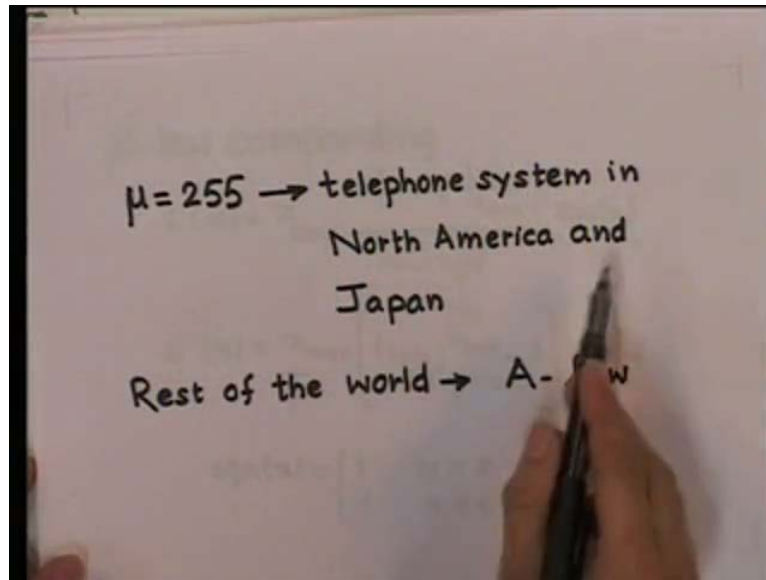 μ = 255 → telephone system in
North America and
Japan
Rest of the world → A-